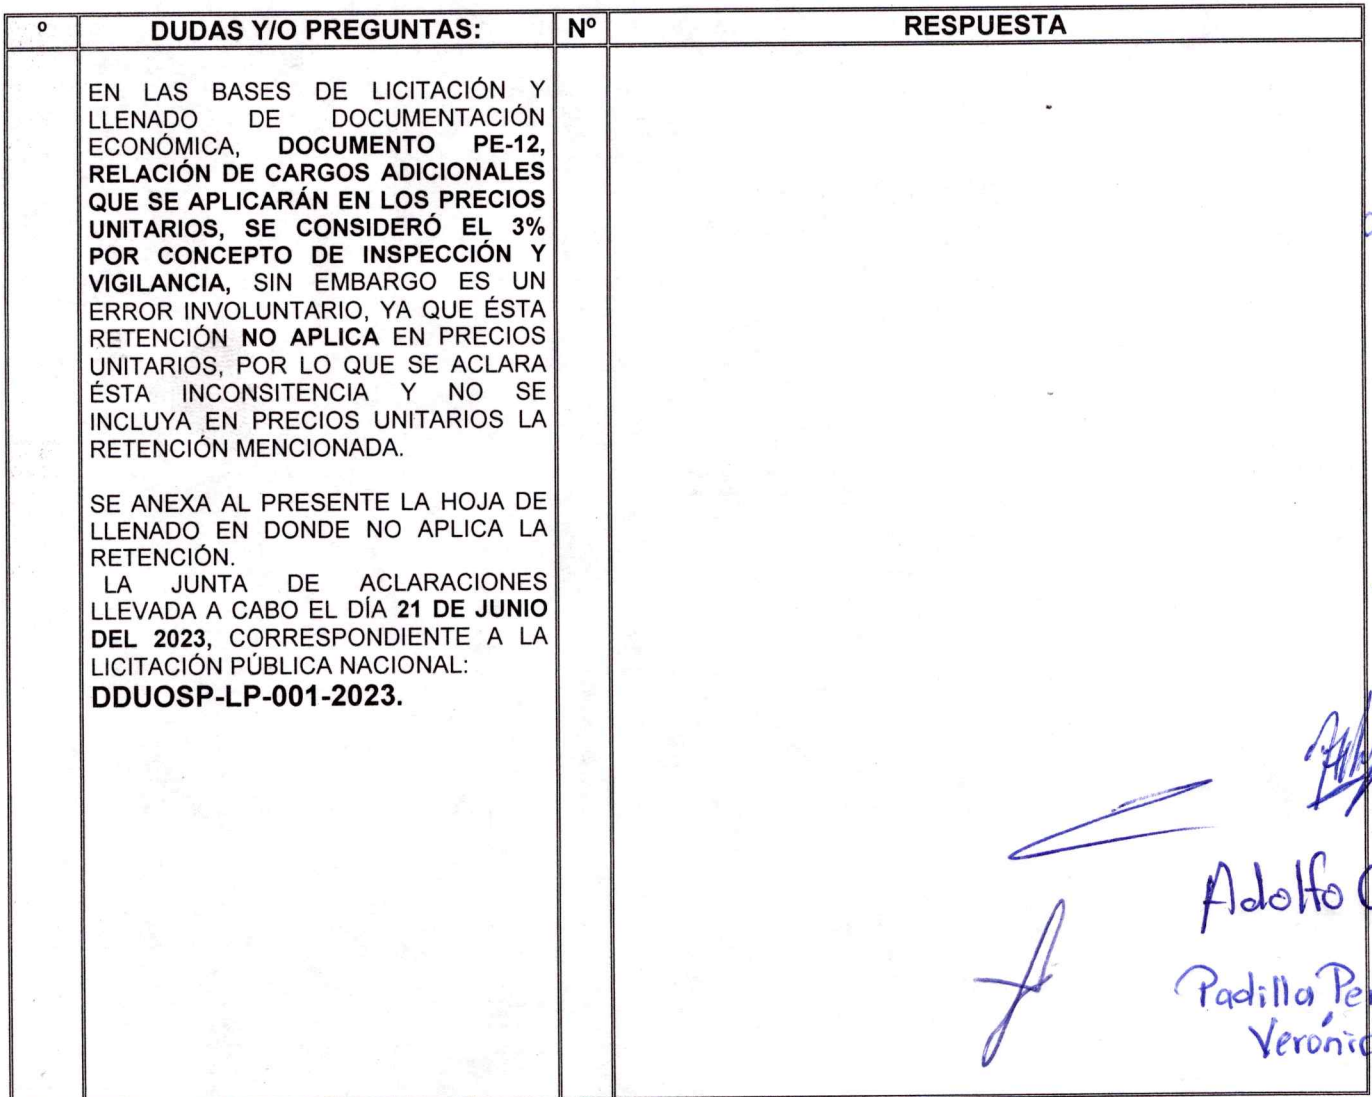 º DUDAS Y/O PREGUNTAS: Nº RESPUESTA
EN LAS BASES DE LICITACIÓN Y
LLENADO DE DOCUMENTACIÓN
ECONÓMICA, DOCUMENTO PE-12,
RELACIÓN DE CARGOS ADICIONALES
QUE SE APLICARÁN EN LOS PRECIOS
UNITARIOS, SE CONSIDERÓ EL 3%
POR CONCEPTO DE INSPECCIÓN Y
VIGILANCIA, SIN EMBARGO ES UN
ERROR INVOLUNTARIO, YA QUE ÉSTA
RETENCIÓN NO APLICA EN PRECIOS
UNITARIOS, POR LO QUE SE ACLARA
ÉSTA INCONSITENCIA Y NO SE
INCLUYA EN PRECIOS UNITARIOS LA
RETENCIÓN MENCIONADA.
SE ANEXA AL PRESENTE LA HOJA DE
LLENADO EN DONDE NO APLICA LA
RETENCIÓN.
LA JUNTA DE ACLARACIONES
LLEVADA A CABO EL DÍA 21 DE JUNIO
DEL 2023, CORRESPONDIENTE A LA
LICITACIÓN PÚBLICA NACIONAL:
DDUOSP-LP-001-2023.
Adolfo
Padilla